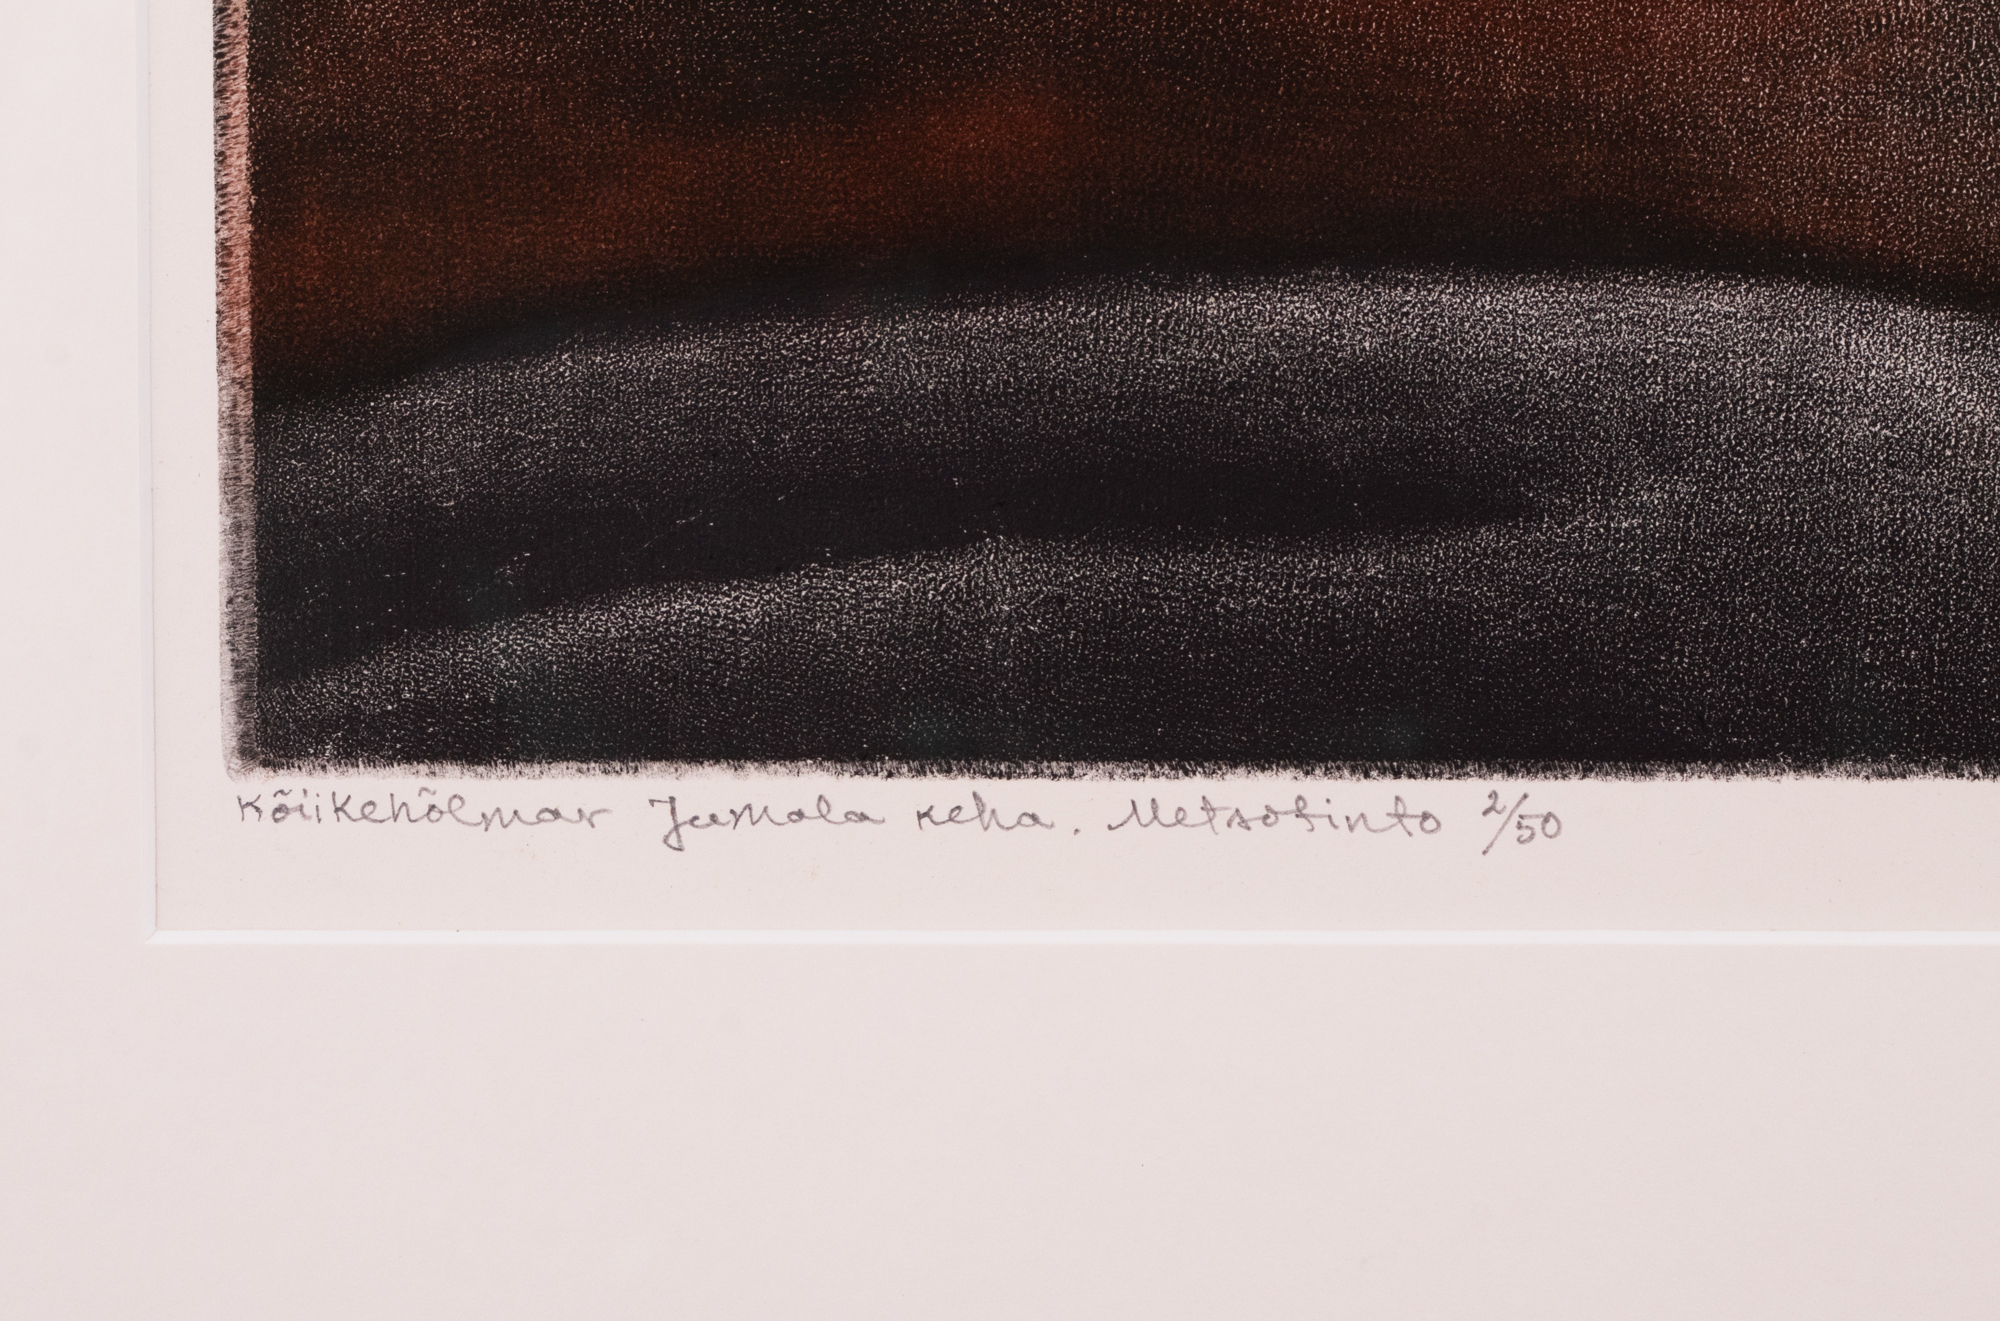 Kõiikehõlmav Jumala keha. Metsotinto 2/50